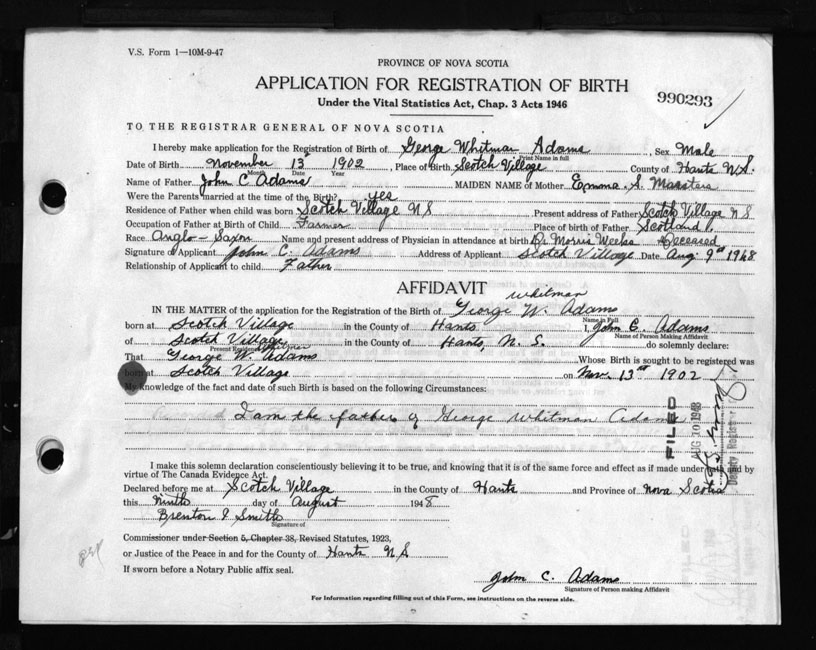 V.S. Form 1—10M-9-47
PROVINCE OF NOVA SCOTIA
APPLICATION FOR REGISTRATION OF BIRTH
Under the Vital Statistics Act, Chap. 3 Acts 1946
990293
TO THE REGISTRAR GENERAL OF NOVA SCOTIA
I hereby make application for the Registration of Birth of George Whitman Adams, Sex Male
Print Name in full
Date of Birth November 13th 1902, Place of Birth Scotch Village County of Hants N.S.
Month Day Year
Name of Father John C Adams MAIDEN NAME of Mother Emma S. Marsters
Were the Parents married at the time of the Birth? yes
Residence of Father when child was born Scotch Village N S Present address of Father Scotch Village N S
Occupation of Father at Birth of Child Farmer Place of birth of Father Scotland
Race Anglo-Saxon Name and present address of Physician in attendance at birth Dr Morris Weeks Deceased
Signature of Applicant John C. Adams Address of Applicant Scotch Village Date Aug 9th 1948
Relationship of Applicant to child Father
AFFIDAVIT
Whitman
IN THE MATTER of the application for the Registration of the Birth of George W. Adams
Name in Full
born at Scotch Village in the County of Hants I, John C. Adams
Name of Person Making Affidavit
of Scotch Village in the County of Hants, N. S. do solemnly declare:
Whitman
That George W. Adams Whose Birth is sought to be registered was
born at Scotch Village on Nov. 13th 1902
My knowledge of the fact and date of such Birth is based on the following Circumstances:
I am the father of George Whitman Adams
FILED
AUG 10 1948
Deputy Registrar
I make this solemn declaration conscientiously believing it to be true, and knowing that it is of the same force and effect as if made under oath and by
virtue of The Canada Evidence Act.
Declared before me at Scotch Village in the County of Hants and Province of Nova Scotia
this Ninth day of August 1948
Brenton I Smith
Signature of
Commissioner under Section 5, Chapter 38, Revised Statutes, 1923,
or Justice of the Peace in and for the County of Hants N S
If sworn before a Notary Public affix seal.
John C. Adams
Signature of Person making Affidavit
For Information regarding filling out of this Form, see instructions on the reverse side.